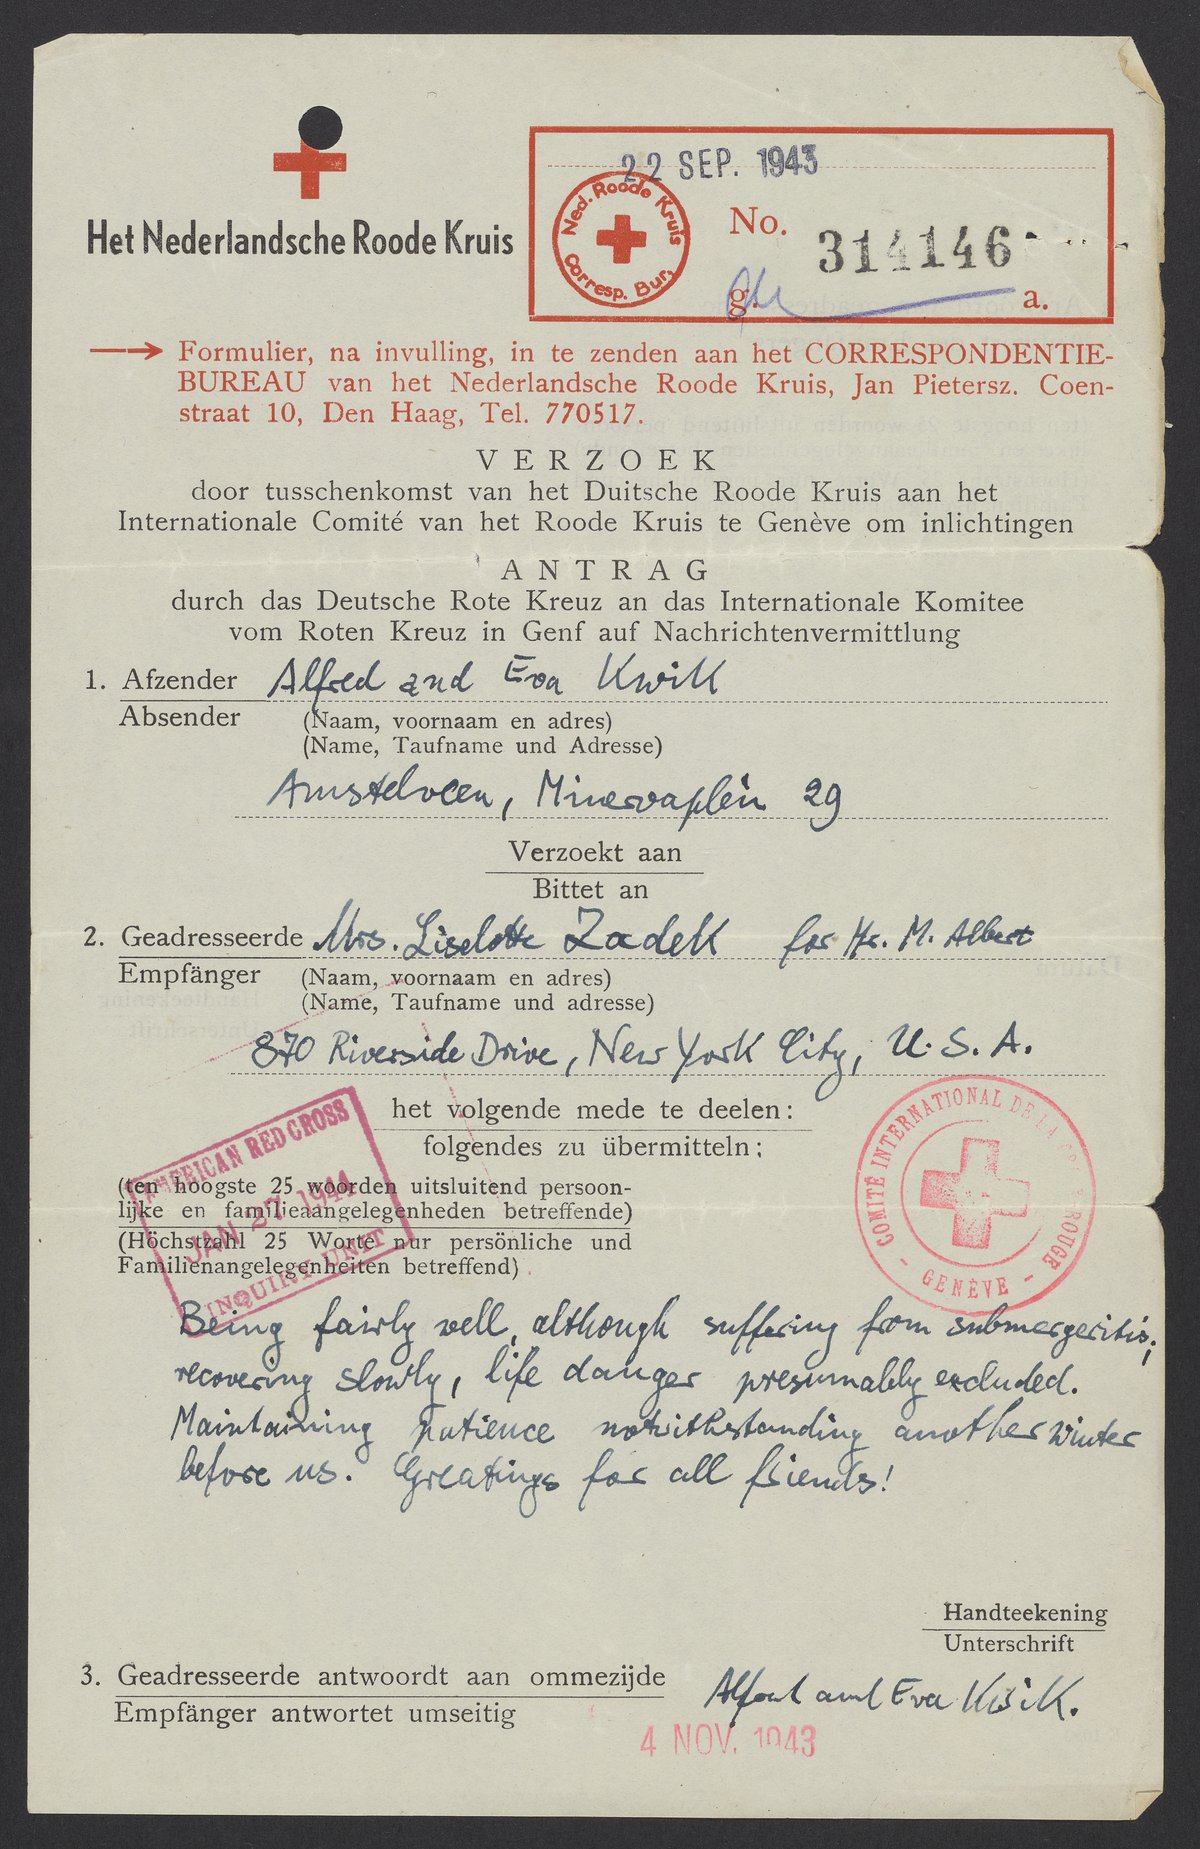 22 SEP. 1943
Ned. Roode Kruis
Corresp. Bur.
No.
314146
g.
a.
Het Nederlandsche Roode Kruis
Formulier, na invulling, in te zenden aan het CORRESPONDENTIE-
BUREAU van het Nederlandsche Roode Kruis, Jan Pietersz. Coen-
straat 10, Den Haag, Tel. 770517.
VERZOEK
door tusschenkomst van het Duitsche Roode Kruis aan het
Internationale Comité van het Roode Kruis te Genève om inlichtingen
ANTRAG
durch das Deutsche Rote Kreuz an das Internationale Komitee
vom Roten Kreuz in Genf auf Nachrichtenvermittlung
1. Afzender Alfred and Eva Kwik
Absender (Naam, voornaam en adres)
(Name, Taufname und Adresse)
Amstelveen, Minervaplein 29
Verzoekt aan
Bittet an
2. Geadresseerde Mrs. Liselotte Zadek for Mr. M. Albert
Empfänger (Naam, voornaam en adres)
(Name, Taufname und adresse)
870 Riverside Drive, New York City, U. S. A.
het volgende mede te deelen:
folgendes zu übermitteln:
(ten hoogste 25 woorden uitsluitend persoon-
lijke en familieaangelegenheden betreffende)
(Höchstzahl 25 Worte nur persönliche und
Familienangelegenheiten betreffend)
AMERICAN RED CROSS
JAN 27 1944
INQUIRY UNIT
COMITÉ INTERNATIONAL DE LA CROIX ROUGE
- GENÈVE -
Being fairly well, although suffering from submergeritis;
recovering slowly, life danger presumably excluded.
Maintaining patience notwithstanding another winter
before us. Greatings for all friends!
Handteekening
Unterschrift
3. Geadresseerde antwoordt aan ommezijde
Empfänger antwortet umseitig
Alfred and Eva Kwik.
4 NOV. 1943